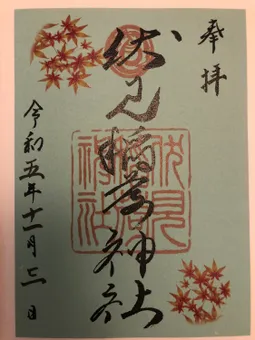 奉拝
伏見稲荷神社
令和五年十一月三日